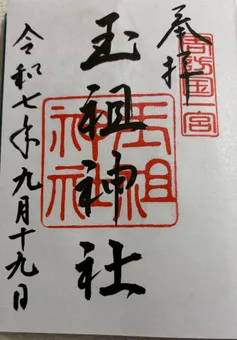 奉拝
周防国一宮
玉祖神社
玉祖神社
令和七年九月十九日